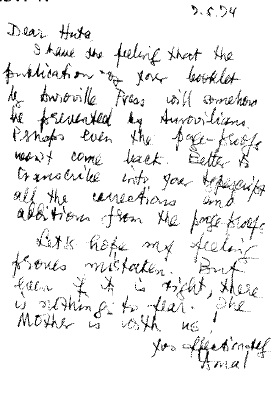 7.5.74
Dear Huta
I have the feeling that the
publication of your booklet
by Auroville Press will somehow
be prevented by Aurovilians.
Perhaps even the page-proofs
won't come back. Better to
transcribe into your typescript
all the corrections and
additions from the page-proofs
Let's hope my feeling
proves mistaken. But
even if it is right, there
is nothing to fear. The
Mother is with us!
Yrs affectionately
Amal